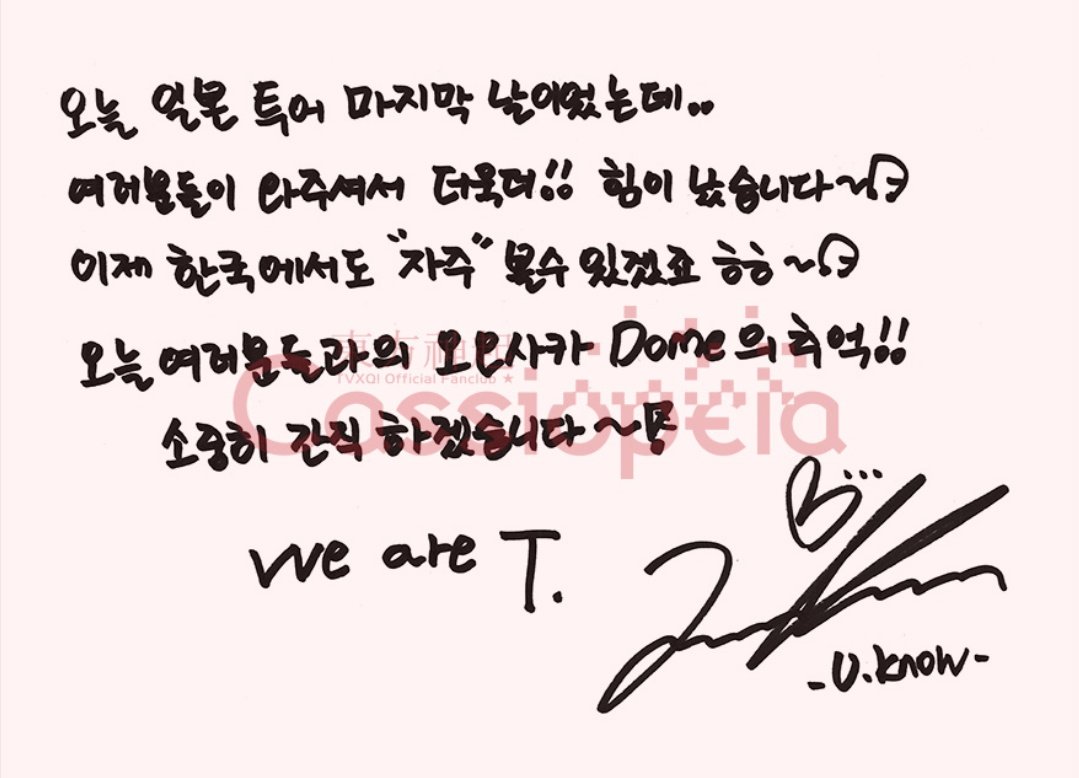 오늘 일본 투어 마지막 날이었는데..
여러분들이 와주셔서 더욱더!! 힘이 났습니다~
이제 한국에서도 "자주" 볼수 있겠죠 ㅎㅎ~
오늘 여러분들과의 오오사카 Dome의 추억!!
소중히 간직 하겠습니다~
東方神起
TVXQ! Official Fanclub ★
Cassiopeia
We are T.
-U.know-